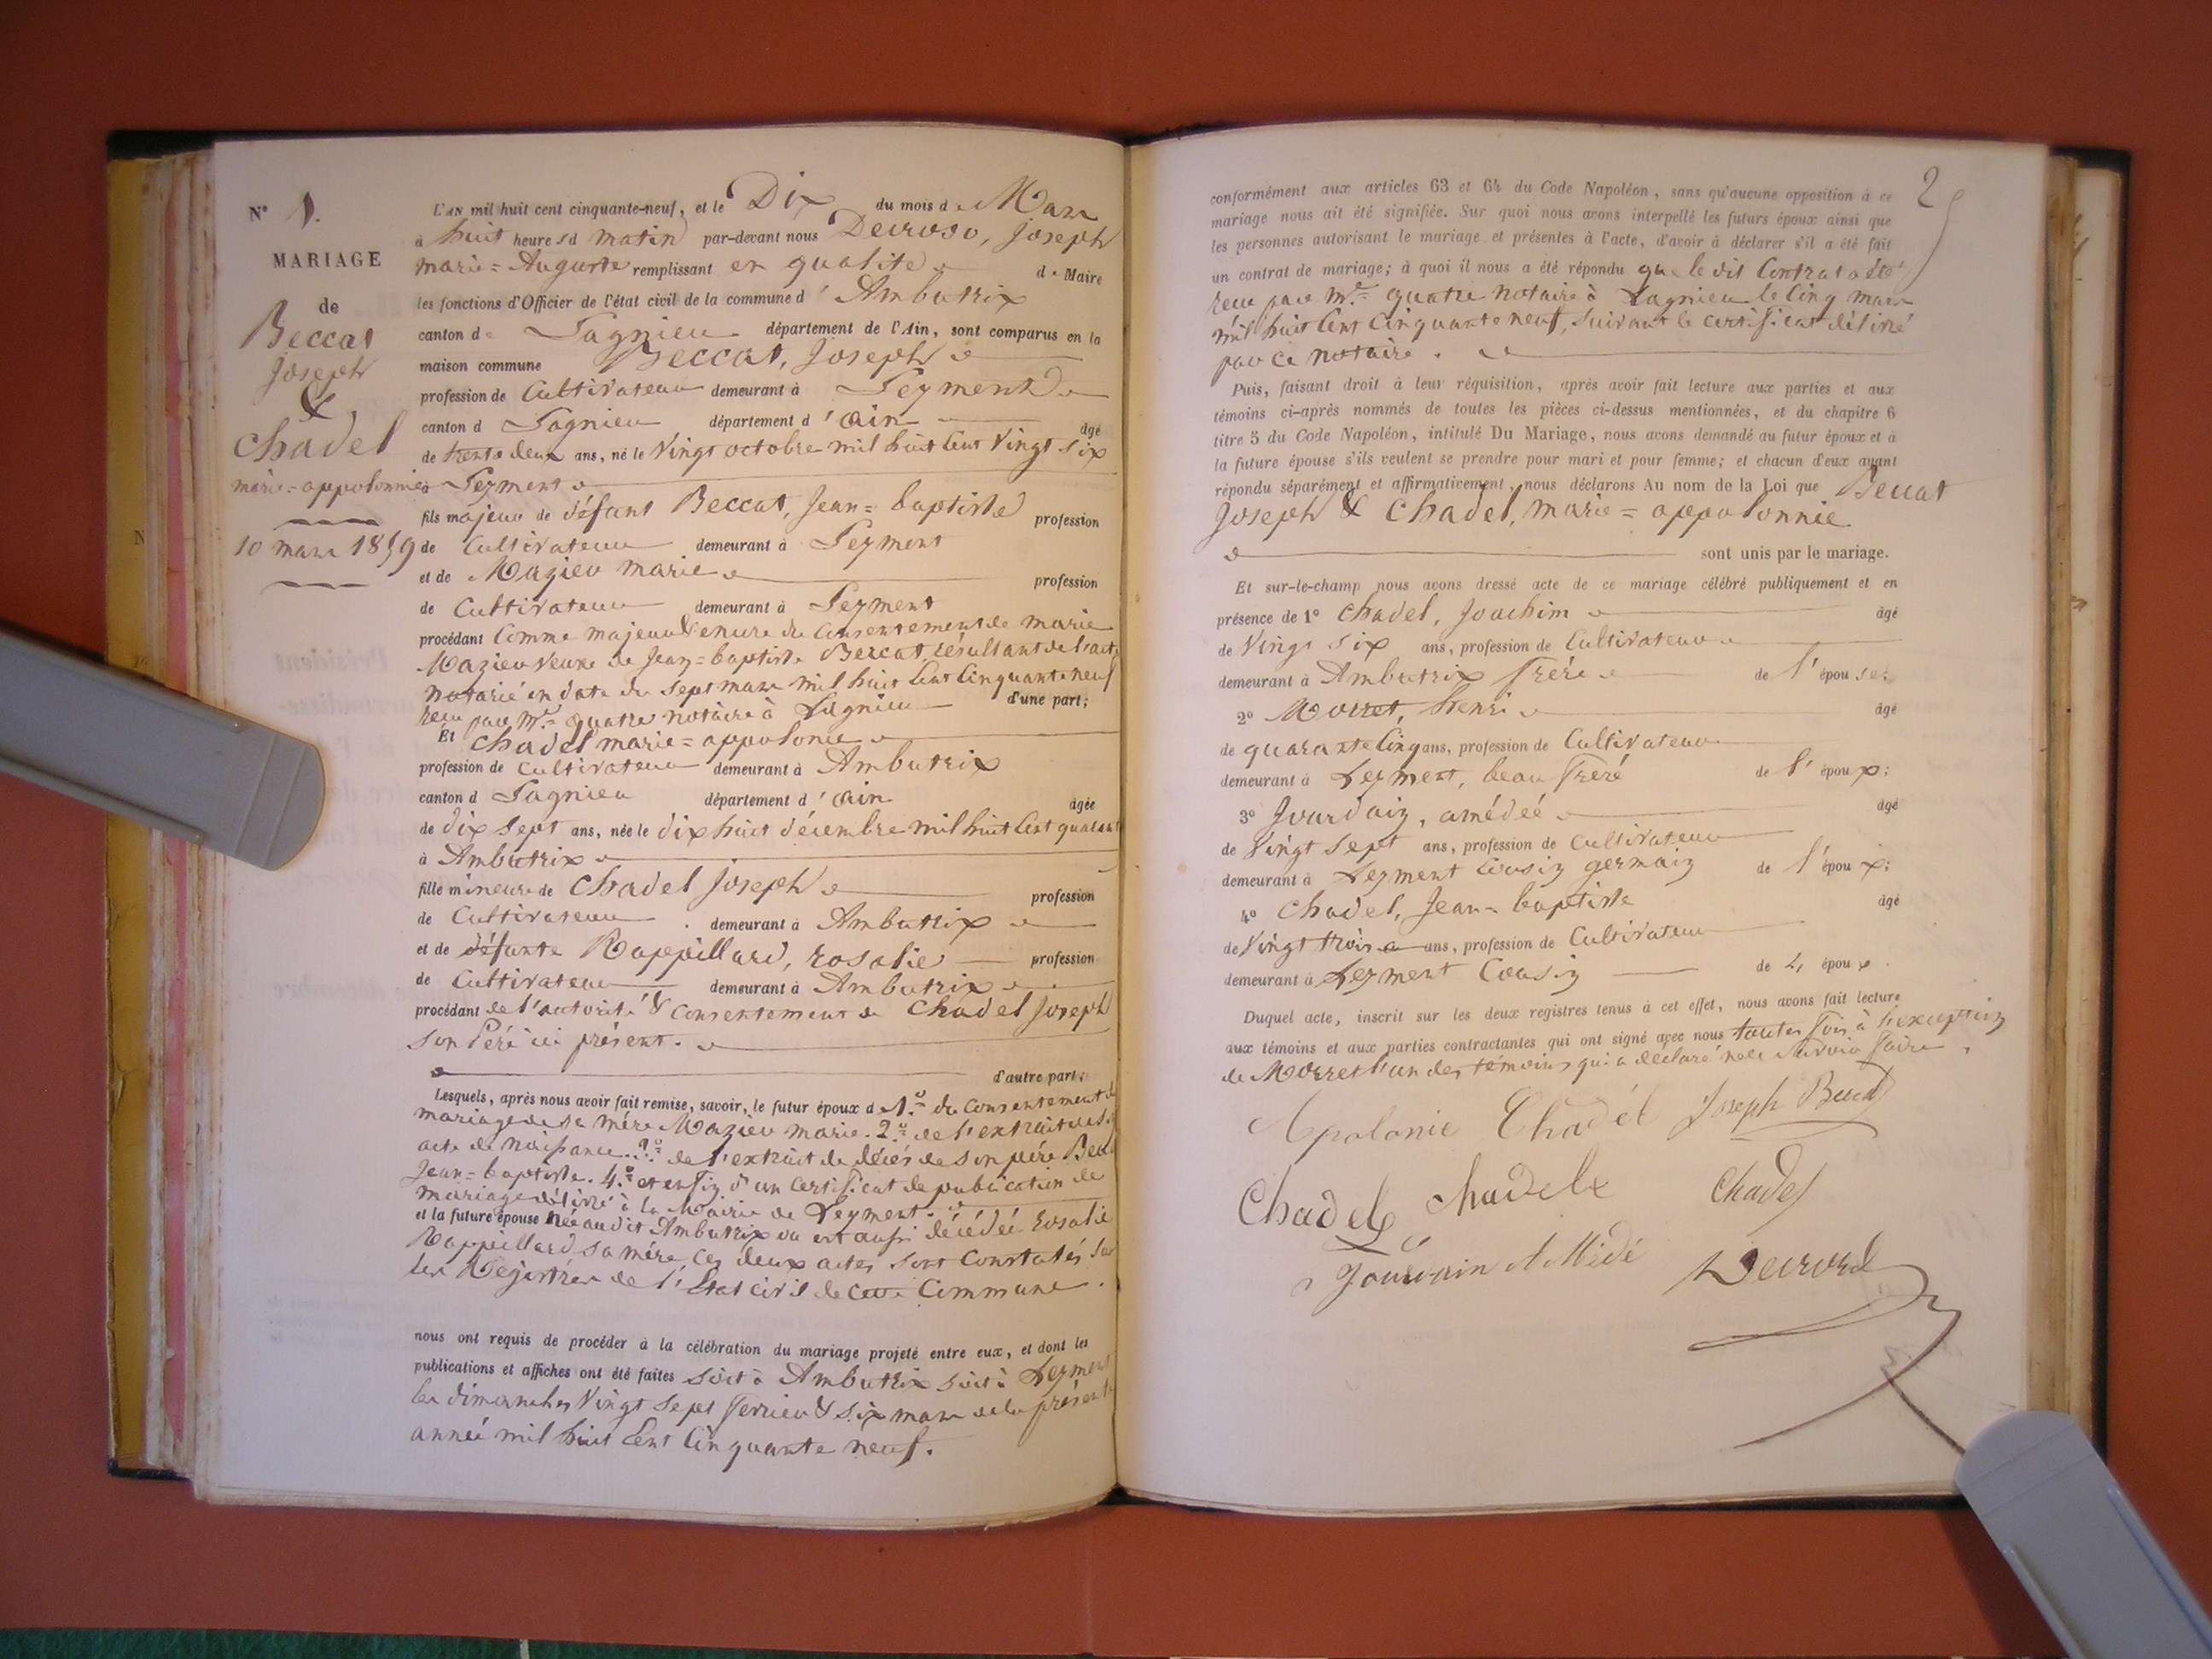 N° 1.
MARIAGE
de
Beccat
Joseph
&
Chadel
marie=appolonnie
10 mars 1859
L'AN mil huit cent cinquante-neuf, et le Dix du mois de Mars
à huit heures d matin par-devant nous Joseph
marie=Auguste remplissant en qualité de Maire
les fonctions d'Officier de l'état civil de la commune d'Ambutrix
canton de Lagnieu département de l'Ain, sont comparus en la
maison commune Beccat, Joseph
profession de Cultivateur demeurant à Leyment
canton d Lagnieu département d'ain âgé
de trente deux ans, né le Vingt octobre mil huit Cent Vingt six
à Leyment
fils majeur de défunt Beccat, Jean=baptiste profession
de Cultivateur demeurant à Leyment
et de Mazieu marie profession
de Cultivateur demeurant à Leyment
procédant Comme majeur & du Consentement de marie
Mazieu Veuve de Jean=baptiste Beccat, résultant de l'acte
notarié en date du sept mars mil huit Cent Cinquante neuf
reçu par Me quatre notaire à Lagnieu d'une part;
Et Chadel marie=appolonie
profession de Cultivateur demeurant à Ambutrix
canton d Lagnieu département d'ain âgée
de dix sept ans, née le dix huit décembre mil huit Cent quarante
à Ambutrix
fille mineure de Chadel Joseph profession
de Cultivateur demeurant à Ambutrix
et de défunte Rappillard, rosalie profession
de Cultivateur demeurant à Ambutrix
procédant de l'autorité & Consentement de Chadel Joseph
son Péré ici présent.
d'autre part;
Lesquels, après nous avoir fait remise, savoir, le futur époux d 1° du Consentement de
mariage de sa mére Mazieu marie. 2° de l'extrait de s
acte de naissance. 3° de l'extrait de décés de son pére
Jean=baptiste. 4° et enfin d'un Certificat de publication de
mariage délivré à la Mairie de Leyment.
et la future épouse née au dit Ambutrix ou est aussi décédée rosalie
Rappillard sa mére, Ces deux actes sont Constatés sur
les Régistres de l'État Civil de cette Commune.
nous ont requis de procéder à la célébration du mariage projeté entre eux, et dont les
publications et affiches ont été faites soit à Ambutrix soit à Leyment
les dimanches Vingt sept fevrier & six mars de la présente
année mil huit Cent Cinquante neuf.
2
conformément aux articles 63 et 64 du Code Napoléon, sans qu'aucune opposition à ce
mariage nous ait été signifiée. Sur quoi nous avons interpellé les futurs époux ainsi que
les personnes autorisant le mariage et présentes à l'acte, d'avoir à déclarer s'il a été fait
un contrat de mariage; à quoi il nous a été répondu que le dit Contrat a été
reçu par Me quatre notaire à Lagnieu le Cinq mars
mil huit Cent Cinquante neuf, suivant le certificat délivré
par ce notaire.
Puis, faisant droit à leur réquisition, après avoir fait lecture aux parties et aux
témoins ci-après nommés de toutes les pièces ci-dessus mentionnées, et du chapitre 6
titre 5 du Code Napoléon, intitulé Du Mariage, nous avons demandé au futur époux et à
la future épouse s'ils veulent se prendre pour mari et pour femme; et chacun d'eux ayant
répondu séparément et affirmativement, nous déclarons Au nom de la Loi que Beccat
Joseph & Chadel, marie=appolonnie
sont unis par le mariage.
Et sur-le-champ nous avons dressé acte de ce mariage célébré publiquement et en
présence de 1° Chadel, Joachim âgé
de Vingt six ans, profession de Cultivateur
demeurant à Ambutrix frére de l'épouse;
2° Morret, henri âgé
de quarante Cinq ans, profession de Cultivateur
demeurant à Leyment, beau frére de l'époux;
3° Jourdain, amédéé âgé
de Vingt sept ans, profession de Cultivateur
demeurant à Leyment Cousin germain de l'époux;
4° Chadel, Jean=baptiste âgé
de Vingt trois ans, profession de Cultivateur
demeurant à Leyment Cousin de L, époux.
Duquel acte, inscrit sur les deux registres tenus à cet effet, nous avons fait lecture
aux témoins et aux parties contractantes qui ont signé avec nous toutes fois à l'exception
de Morret l'un des témoins qui a déclaré ne le savoir faire.
Apolonie Chadél Joseph Beccat
Chadel Chadel Chadel
Jourdain